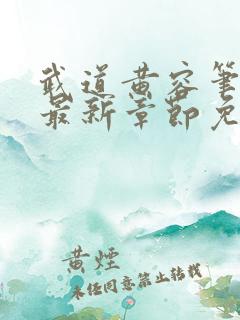 武道黄容笔
最新章节免
黄煙
未经同意禁止转载